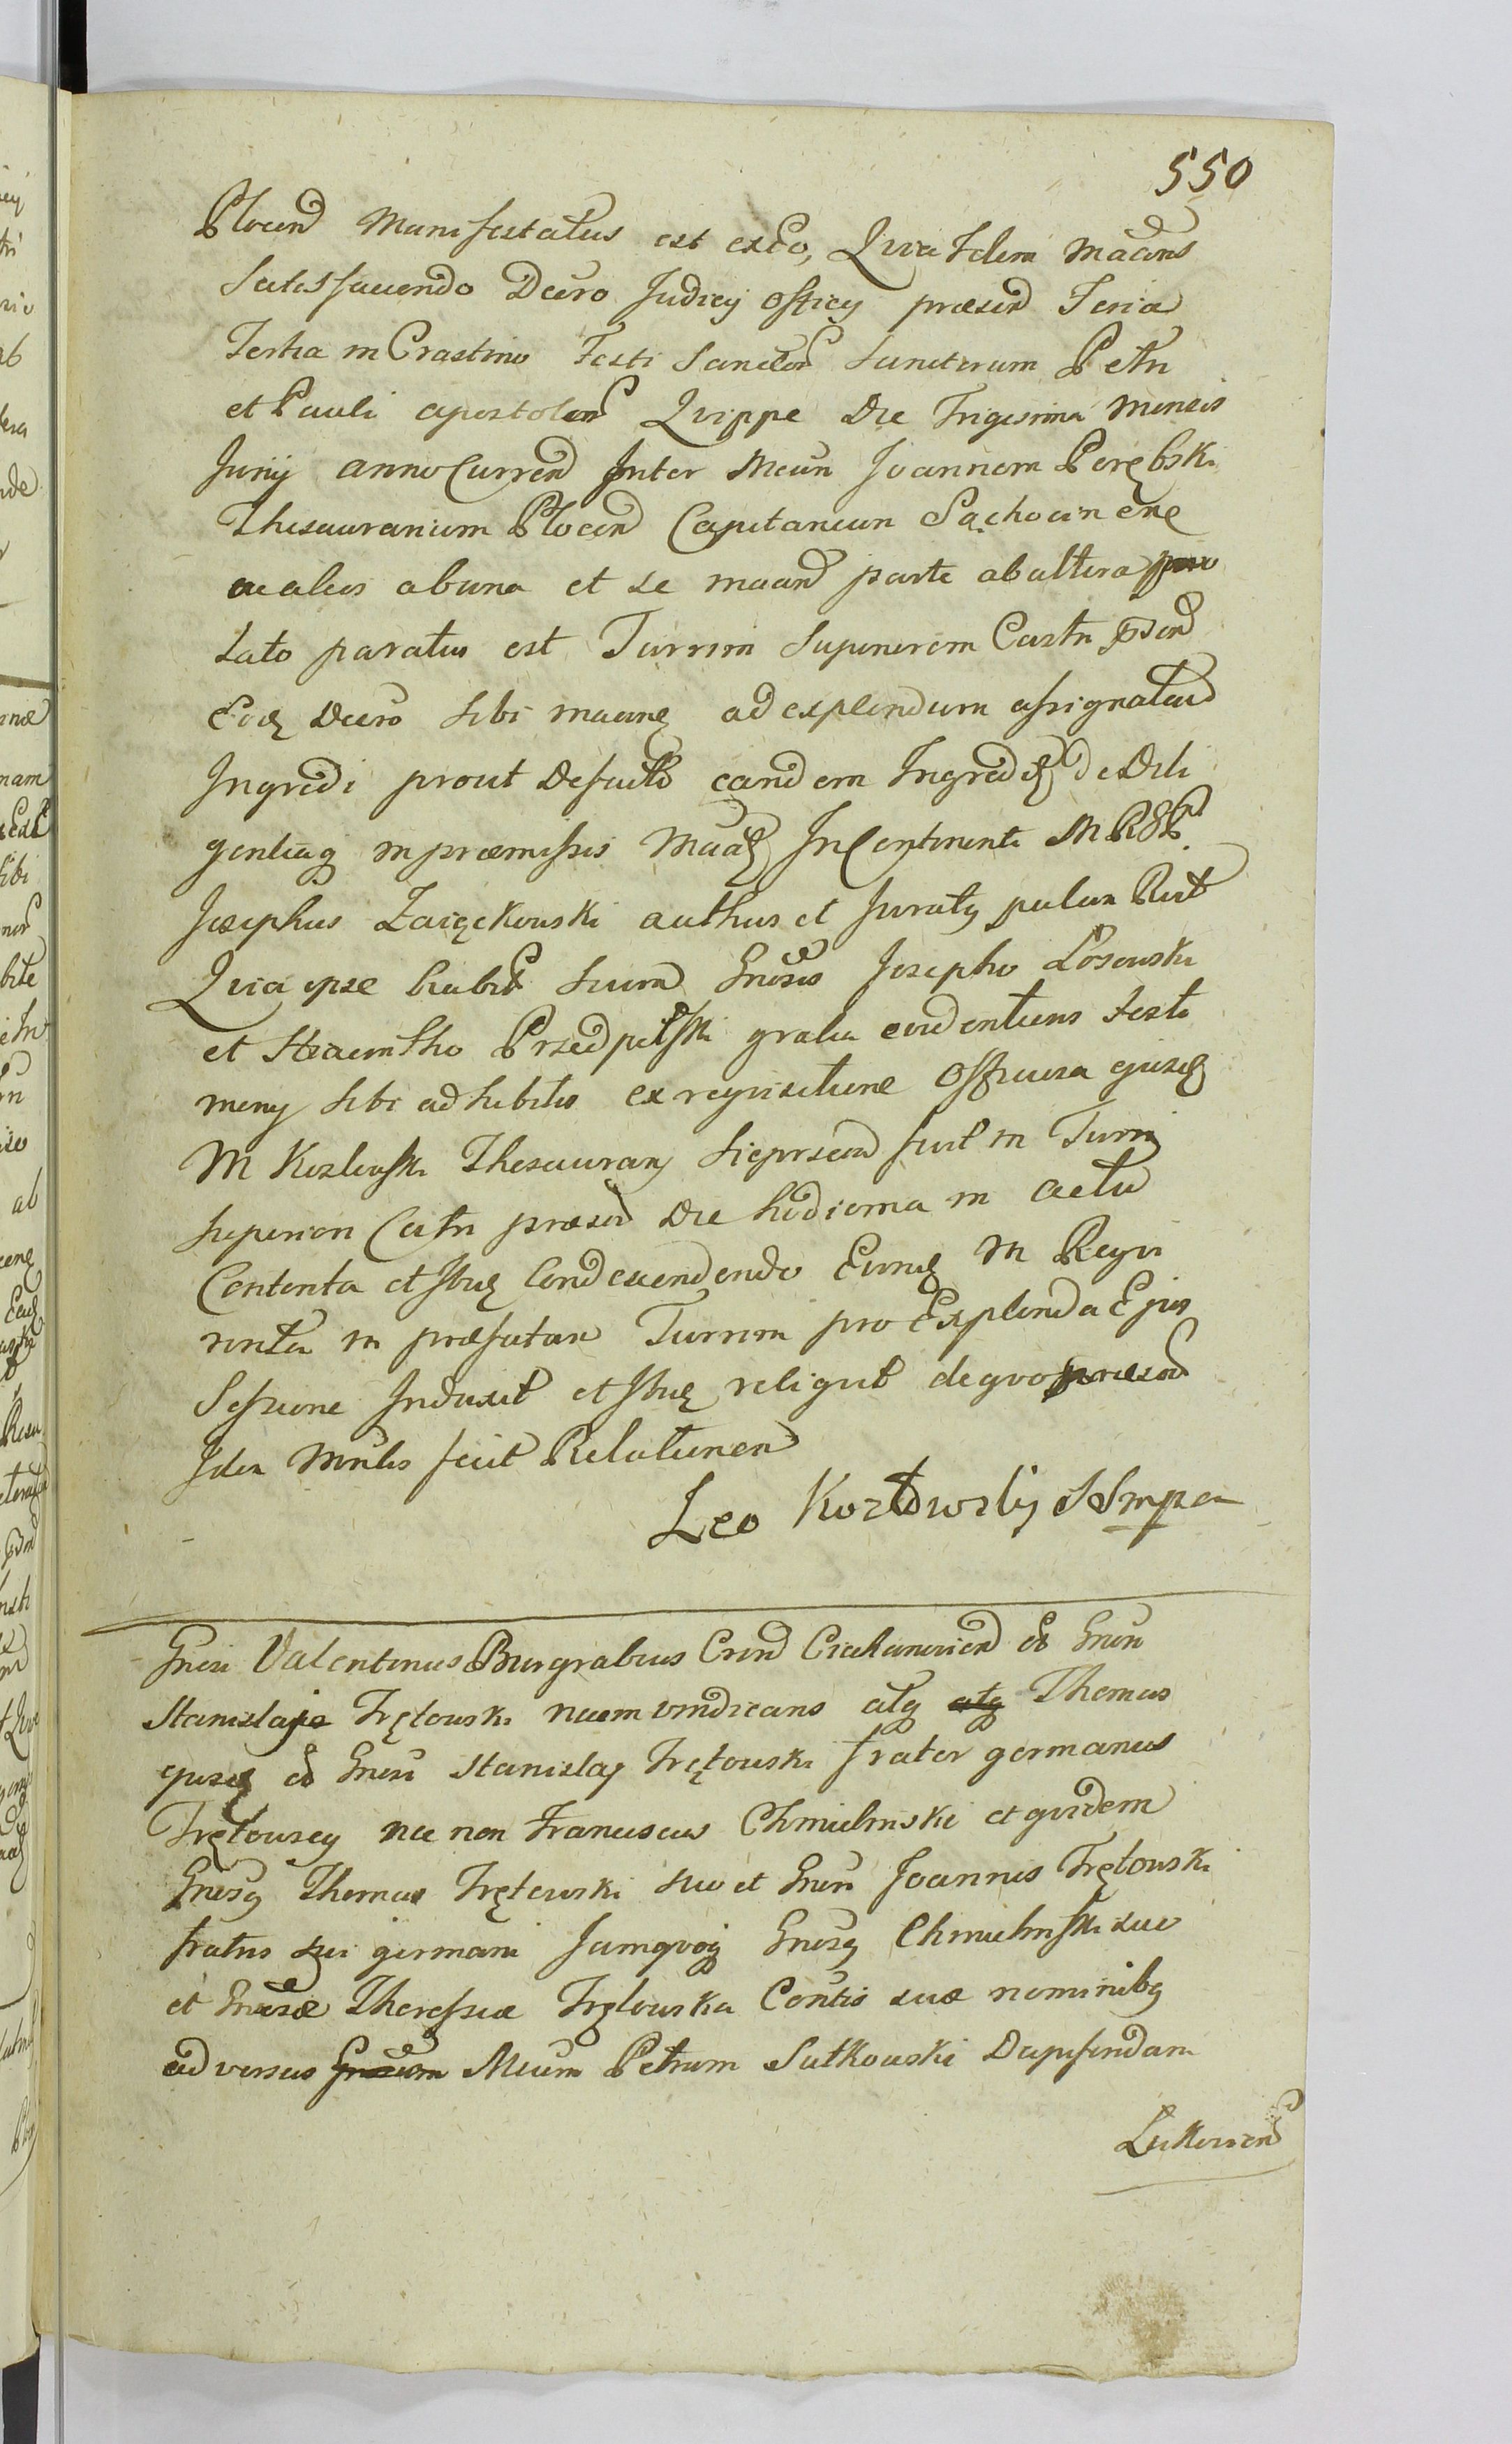 550
Plocen Manifestatus est exeo, Quia Idem Maans
Satisfaciendo Decro Judicy Officy præsen Feria
Tertia in Crastino Festi Sanctor Sanctorum Petri
et Pauli apostolor Quippe Die Trigesima Mensis
Juny anno Curren Inter Mcum Joannem Porębski
Thesaurarium Plocen Capitaneum Sąchocinene
ac alios ab una et se maan parte ab altera
lato paratus est Turrim Superiorem Castri pnsen
Eod Decro sibi maane ad explendum assignatam
Ingredi prout Defacto eandem Ingred de Dili
gentiaq in præmissis Incontinenti
Josephus Zaięckowski authus et Juratg palam Rec
Quia ipse habit secum Gnosis Josepho Łosowski
et Hiacintho Przedpełski gratia evidentiens testi
mony sibi adhibitis ex requisitione Officiosa ejusd
M Kozłowski Thesaurary Sieprscen fuit in Turri
superiori Castri præsen Die hodierna in actu
Contenta et Ibiq Condescendendo Eund M Requi
rentem in præfatam Turrim pro Explenda Ejus
Sessione Induxit et Ibiq reliquit de quo præsen
Idem Mnlis fecit Relationem
Leo Kozłowsky SSmpa
Gnosi Valentinus Burgrabius Cren Ciechanovien olim Gnosi
Stanislai Trętowski necem vindicans atq atq Thomas
ejusd olim Gnosi Stanislay Trętowski frater germanus
Trętowscy nec non Franciscus Chmielinski et quidem
Gnosg Thomas Trętowski suo et Gnosi Joannis Trętowski
fratris sui germani Jamquog Gnosg Chmielinski suo
et Gnosæ Theressiæ Trętowska Contis suæ nominibg
adversus Gnosum Mcum Petrum Sutkowski Dapiferidam